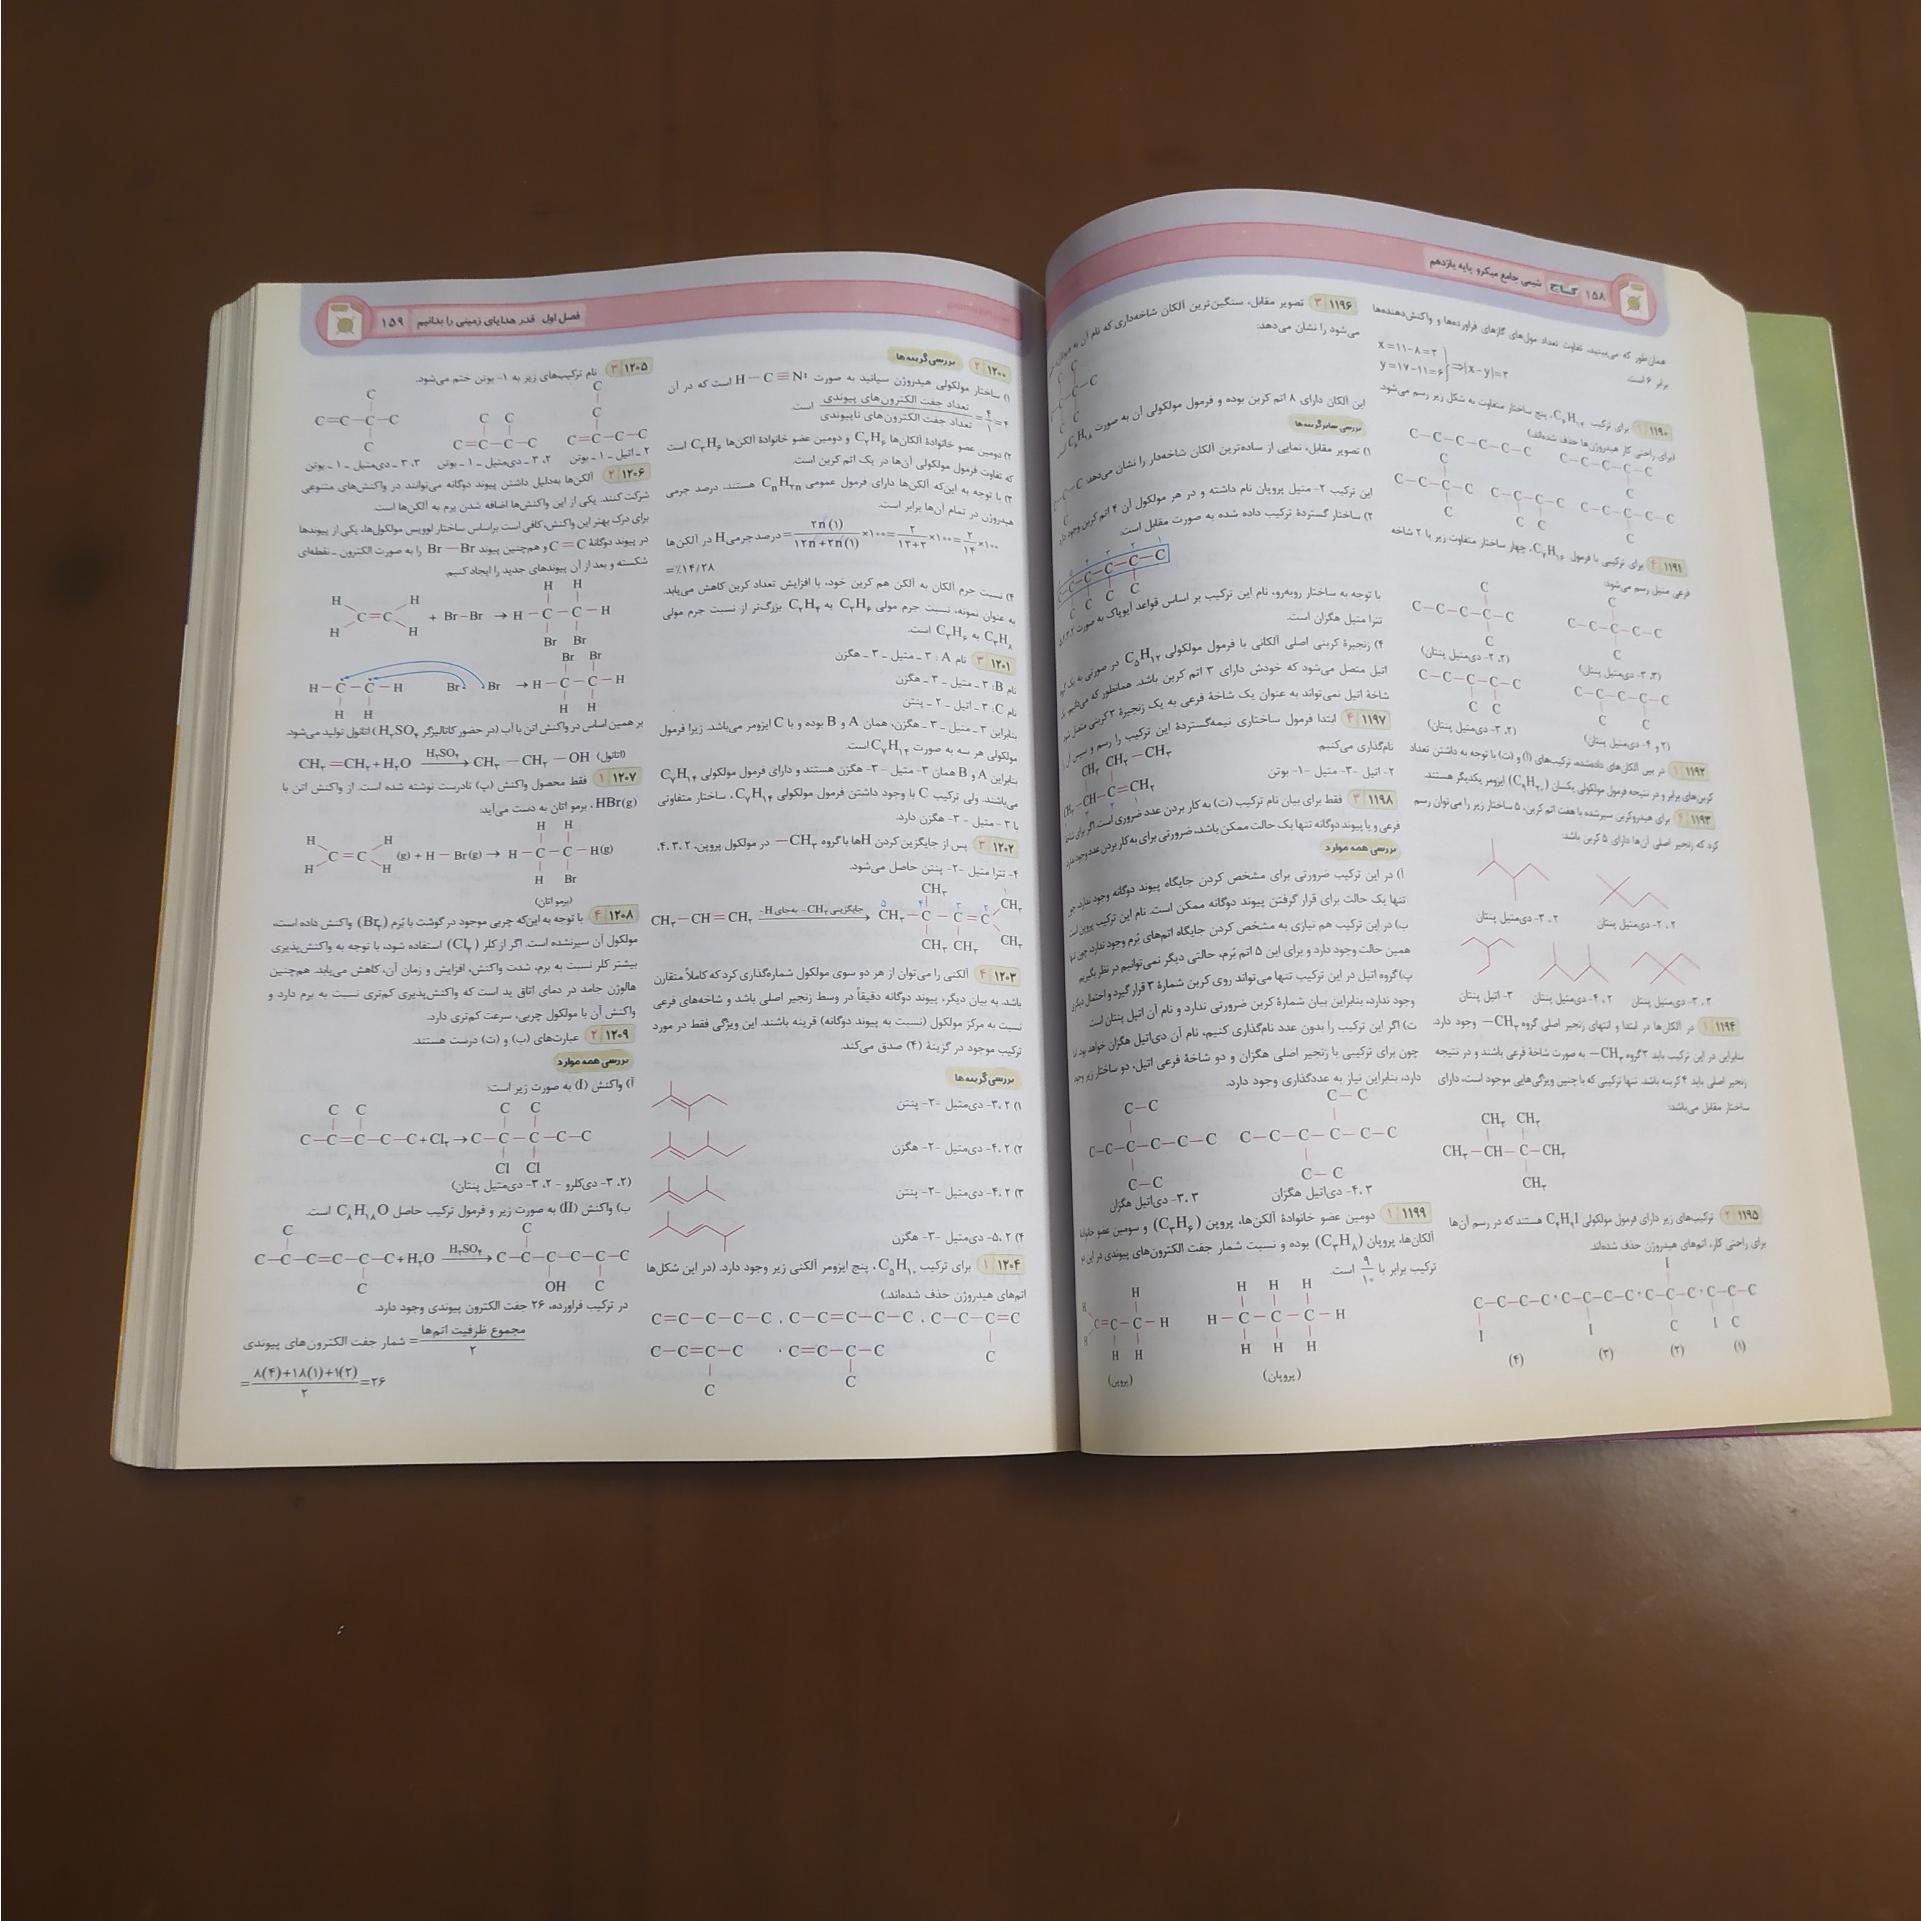 ۱۵۸ گاج شیمی جامع میکرو پایه یازدهم
همان‌طور که می‌بینید، تفاوت تعداد مول‌های گازهای فراورده‌ها و واکنش‌دهنده‌ها
برابر ۶ است.
x=۱۱-۸=۳
y=۱۷-۱۱=۶ ⇒|x-y|=۳
۱۱۹۰ برای ترکیب C₆H₁₄، پنج ساختار متفاوت به شکل زیر رسم می‌شود.
(برای راحتی کار هیدروژن‌ها حذف شده‌اند)
۱۱۹۱ ۴ برای ترکیبی با فرمول C₇H₁₆، چهار ساختار متفاوت زیر با ۲ شاخه
فرعی متیل رسم می‌شود:
(۳، ۳- دی‌متیل پنتان) (۲، ۲- دی‌متیل پنتان)
(۲ و ۴- دی‌متیل پنتان) (۲، ۳- دی‌متیل پنتان)
۱۱۹۲ ۱ در بین آلکان‌های داده‌شده، ترکیب‌های (آ) و (ت) با توجه به داشتن تعداد
کربن‌های برابر و در نتیجه فرمول مولکولی یکسان (C₉H₂₀) ایزومر یکدیگر هستند.
۱۱۹۳ ۴ برای هیدروکربن سیرشده با هفت اتم کربن، ۵ ساختار زیر را می‌توان رسم
کرد که زنجیر اصلی آن‌ها دارای ۵ کربن باشد:
۲، ۲- دی‌متیل پنتان ۲، ۳- دی‌متیل پنتان
۳، ۳- دی‌متیل پنتان ۲، ۴- دی‌متیل پنتان ۳- اتیل پنتان
۱۱۹۴ ۱ در آلکان‌ها در ابتدا و انتهای زنجیر اصلی گروه CH₃− وجود دارد.
بنابراین در این ترکیب باید ۳ گروه CH₃− به صورت شاخهٔ فرعی باشند و در نتیجه
زنجیر اصلی باید ۴ کربنه باشد. تنها ترکیبی که با چنین ویژگی‌هایی موجود است، دارای
ساختار مقابل می‌باشد:
CH₃ CH₃
CH₃−CH−C−CH₃
CH₃
۱۱۹۵ ۲ ترکیب‌های زیر دارای فرمول مولکولی C₄H₉I هستند که در رسم آن‌ها
برای راحتی کار، اتم‌های هیدروژن حذف شده‌اند.
(۱) (۲) (۳) (۴)
۱۱۹۶ ۳ تصویر مقابل، سنگین‌ترین آلکان شاخه‌داری که نام آن به
می‌شود را نشان می‌دهد:
این آلکان دارای ۸ اتم کربن بوده و فرمول مولکولی آن به صورت C₈H₁₈
بررسی سایر گزینه‌ها
۱) تصویر مقابل، نمایی از ساده‌ترین آلکان شاخه‌دار را نشان می‌دهد
این ترکیب ۲- متیل پروپان نام داشته و در هر مولکول آن ۴ اتم کربن وجود دارد
۲) ساختار گستردهٔ ترکیب داده شده به صورت مقابل است:
با توجه به ساختار روبه‌رو، نام این ترکیب بر اساس قواعد آیوپاک به صورت
تترا متیل هگزان است.
۴) زنجیرهٔ کربنی اصلی آلکانی با فرمول مولکولی C₅H₁₂ در صورتی به یک
اتیل متصل می‌شود که خودش دارای ۳ اتم کربن باشد. همانطور که می‌دانیم،
شاخهٔ اتیل نمی‌تواند به عنوان یک شاخهٔ فرعی به یک زنجیرهٔ ۳ کربنی متصل شود
۱۱۹۷ ۴ ابتدا فرمول ساختاری نیمه‌گستردهٔ این ترکیب را رسم و سپس آن را
نام‌گذاری می‌کنیم.
CH₃ CH₂−CH₃
CH−C=CH₂
۲- اتیل -۳- متیل -۱- بوتن
۱۱۹۸ ۳ فقط برای بیان نام ترکیب (ت) به کار بردن عدد ضروری است. اگر برای
فرعی و یا پیوند دوگانه تنها یک حالت ممکن باشد، ضرورتی برای به کار بردن عدد وجود ندارد
بررسی همه موارد
آ) در این ترکیب ضرورتی برای مشخص کردن جایگاه پیوند دوگانه وجود ندارد، چون
تنها یک حالت برای قرار گرفتن پیوند دوگانه ممکن است. نام این ترکیب پروپن است
ب) در این ترکیب هم نیازی به مشخص کردن جایگاه اتم‌های بُرم وجود ندارد، چون تنها
همین حالت وجود دارد و برای این ۵ اتم بُرم، حالتی دیگر نمی‌توانیم در نظر بگیریم
پ) گروه اتیل در این ترکیب تنها می‌تواند روی کربن شمارهٔ ۳ قرار گیرد و احتمال دیگری
وجود ندارد، بنابراین بیان شمارهٔ کربن ضرورتی ندارد و نام آن اتیل پنتان است
ت) اگر این ترکیب را بدون عدد نام‌گذاری کنیم، نام آن دی‌اتیل هگزان خواهد بود، اما
چون برای ترکیبی با زنجیر اصلی هگزان و دو شاخهٔ فرعی اتیل، دو ساختار زیر وجود
دارد، بنابراین نیاز به عددگذاری وجود دارد.
۳،۴- دی‌اتیل هگزان ۳،۳- دی‌اتیل هگزان
۱۱۹۹ ۱ دومین عضو خانوادهٔ آلکن‌ها، پروپن (C₃H₆) و سومین عضو خانوادهٔ
آلکان‌ها، پروپان (C₃H₈) بوده و نسبت شمار جفت الکترون‌های پیوندی در این دو
ترکیب برابر با ۹/۱۰ است.
(پروپان) (پروپن)
فصل اول قدر هدایای زمینی را بدانیم ۱۵۹
۱۲۰۰ ۲ بررسی گزینه‌ها
۱) ساختار مولکولی هیدروژن سیانید به صورت H−C≡N: است که در آن
تعداد جفت الکترون‌های پیوندی / تعداد جفت الکترون‌های ناپیوندی = ۴/۱ = ۴ است.
۲) دومین عضو خانوادهٔ آلکان‌ها C₂H₆ و دومین عضو خانوادهٔ آلکن‌ها C₃H₆ است
که تفاوت فرمول مولکولی آن‌ها در یک اتم کربن است.
۳) با توجه به این‌که آلکن‌ها دارای فرمول عمومی CₙH₂ₙ هستند، درصد جرمی
هیدروژن در تمام آن‌ها برابر است.
درصد جرمی H در آلکن‌ها = ۲n(۱)/۱۲n+۲n(۱) ×۱۰۰ = ۲/۱۲+۲ ×۱۰۰ = ۲/۱۴ ×۱۰۰
=٪۱۴/۲۸
۴) نسبت جرم آلکان به آلکن هم کربن خود، با افزایش تعداد کربن کاهش می‌یابد.
به عنوان نمونه، نسبت جرم مولی C₂H₆ به C₂H₄ بزرگ‌تر از نسبت جرم مولی
C₃H₈ به C₃H₆ است.
۱۲۰۱ ۳ نام A: ۳ـ متیل ـ ۳ ـ هگزن
نام B: ۳ ـ متیل ـ ۳ ـ هگزن
نام C: ۳ ـ اتیل ـ ۲ ـ پنتن
بنابراین ۳ ـ متیل ـ ۳ ـ هگزن، همان A و B بوده و با C ایزومر می‌باشد. زیرا فرمول
مولکولی هر سه به صورت C₇H₁₄ است.
بنابراین A و B همان ۳- متیل -۳- هگزن هستند و دارای فرمول مولکولی C₇H₁₄
می‌باشند. ولی ترکیب C با وجود داشتن فرمول مولکولی C₇H₁₄، ساختار متفاوتی
با ۳ - متیل - ۳- هگزن دارد.
۱۲۰۲ ۳ پس از جایگزین کردن Hها با گروه CH₃− در مولکول پروپن، ۲، ۳، ۴،
۴- تترا متیل -۲- پنتن حاصل می‌شود.
CH₃−CH=CH₂ جایگزینی CH₃− به‌جای H− → CH₃−C−C=C
۱۲۰۳ ۴ آلکنی را می‌توان از هر دو سوی مولکول شماره‌گذاری کرد که کاملاً متقارن
باشد. به بیان دیگر، پیوند دوگانه دقیقاً در وسط زنجیر اصلی باشد و شاخه‌های فرعی
نسبت به مرکز مولکول (نسبت به پیوند دوگانه) قرینه باشند. این ویژگی فقط در مورد
ترکیب موجود در گزینهٔ (۴) صدق می‌کند.
بررسی گزینه‌ها
۱) ۲،۳- دی‌متیل -۲- پنتن
۲) ۲،۴- دی‌متیل -۲- هگزن
۳) ۲،۴- دی‌متیل -۲- پنتن
۴) ۲،۵- دی‌متیل -۳- هگزن
۱۲۰۴ ۱ برای ترکیب C₅H₁₀، پنج ایزومر آلکنی زیر وجود دارد. (در این شکل‌ها
اتم‌های هیدروژن حذف شده‌اند.)
C=C−C−C−C , C−C=C−C−C , C−C−C=C
C−C=C−C , C=C−C−C
۱۲۰۵ ۳ نام ترکیب‌های زیر به ۱- بوتن ختم می‌شود.
۲ ـ اتیل ـ ۱ ـ بوتن ۲، ۳ ـ دی‌متیل ـ ۱ ـ بوتن ۳، ۳ ـ دی‌متیل ـ ۱ ـ بوتن
۱۲۰۶ ۲ آلکن‌ها به‌دلیل داشتن پیوند دوگانه می‌توانند در واکنش‌های متنوعی
شرکت کنند. یکی از این واکنش‌ها اضافه شدن برم به آلکن‌ها است.
برای درک بهتر این واکنش، کافی است براساس ساختار لوویس مولکول‌ها، یکی از پیوندها
در پیوند دوگانهٔ C=C و هم‌چنین پیوند Br−Br را به صورت الکترون ـ نقطه‌ای
شکسته و بعد از آن پیوندهای جدید را ایجاد کنیم.
بر همین اساس در واکنش اتن با آب (در حضور کاتالیزگر H₂SO₄) اتانول تولید می‌شود.
CH₂=CH₂+H₂O H₂SO₄→ CH₃−CH₂−OH (اتانول)
۱۲۰۷ ۱ فقط محصول واکنش (پ) نادرست نوشته شده است. از واکنش اتن با
HBr(g)، برمو اتان به دست می‌آید:
(برمو اتان)
۱۲۰۸ ۴ با توجه به این‌که چربی موجود در گوشت با بُرم (Br₂) واکنش داده است،
مولکول آن سیرنشده است. اگر از کلر (Cl₂) استفاده شود، با توجه به واکنش‌پذیری
بیشتر کلر نسبت به برم، شدت واکنش، افزایش و زمان آن، کاهش می‌یابد. هم‌چنین
هالوژن جامد در دمای اتاق ید است که واکنش‌پذیری کم‌تری نسبت به برم دارد و
واکنش آن با مولکول چربی، سرعت کم‌تری دارد.
۱۲۰۹ ۲ عبارت‌های (ب) و (ت) درست هستند.
بررسی همه موارد
آ) واکنش (I) به صورت زیر است:
C−C=C−C−C+Cl₂→C−C−C−C−C
(۲، ۳- دی‌کلرو - ۲، ۳- دی‌متیل پنتان)
ب) واکنش (II) به صورت زیر و فرمول ترکیب حاصل C₈H₁₈O است.
C−C−C=C−C−C+H₂O H₂SO₄→ C−C−C−C−C−C
در ترکیب فراورده، ۲۶ جفت الکترون پیوندی وجود دارد.
شمار جفت الکترون‌های پیوندی = مجموع ظرفیت اتم‌ها / ۲
= ۸(۴)+۱۸(۱)+۱(۲) / ۲ =۲۶